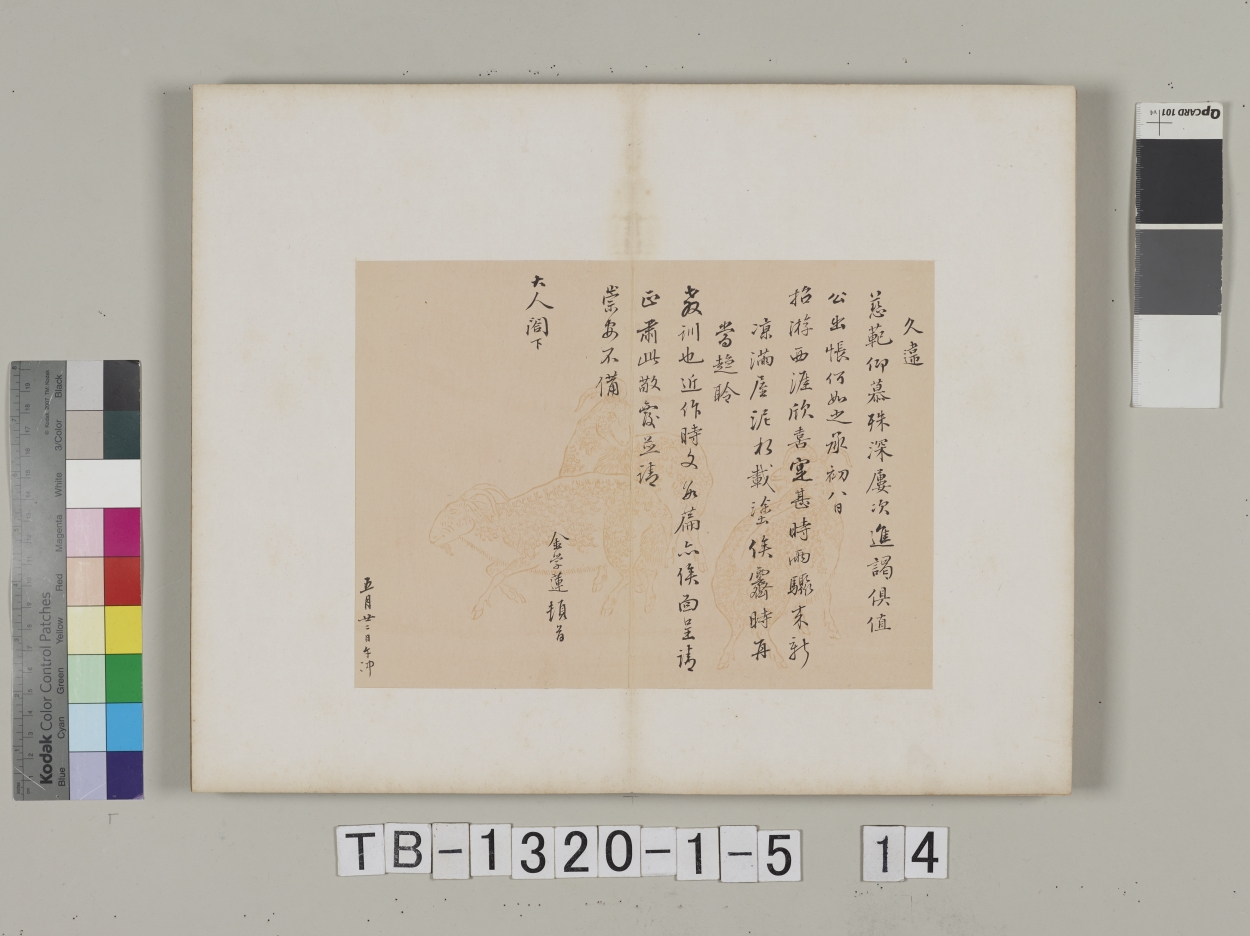 久違
慈範仰慕殊深屢次進謁俱值
公出悵何如之承初八日
招游西涯欣喜寔甚時雨驟來新
涼滿屋泥水載塗俟霽時再
當趨聆
教訓也近作時文數篇亦俟面呈請
正肅此敬覆並請
崇安不備
大人閣下
金學蓮頓首
五月廿二日午沖
TB-1320-1-5 14
Kodak Color Control Patches
Blue Cyan Green Yellow Red Magenta White 3/Color Black
QPCARD 101